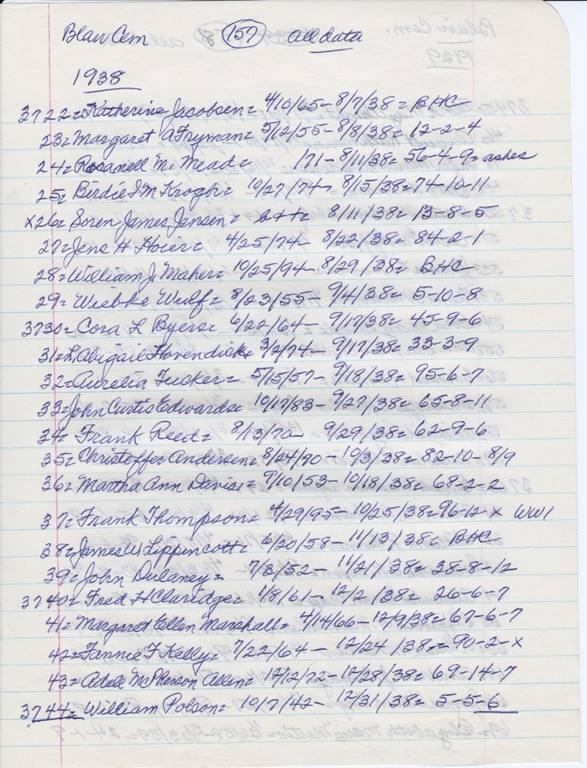 Blair Cem 157 all data
1938
3722 = Katherine Jacobsen = 4/10/65 - 8/7/38 = BHC
23 = Margaret A Fryman = 5/12/55 - 8/8/38 = 12-2-4
24 = Rosanell M. Mead = /71 - 8/11/38 = 56-4-9 = ashes
25 = Birdie I M Krogh = 10/27/74 - 8/15/38 = 74-10-11
x26 = Soren James Jensen = b++ 8/11/38 = 13-8-5
27 = Jens H Hoier = 4/25/74 - 8/22/38 = 84-2-1
28 = William J. Maher = 10/25/94 - 8/29/38 = BHC
29 = Wiebke Wulf = 8/23/55 - 9/4/38 = 5-10-8
3730 = Cora L Byers = 6/22/64 - 9/17/38 = 45-9-6
31 = L. Abigail Hovendick = 3/2/74 - 9/17/38 = 33-3-9
32 = Aurelia Tucker = 5/15/57 - 9/18/38 = 95-6-7
33 = John Curtis Edwards = 10/17/83 - 9/27/38 = 65-8-11
34 = Frank Reed = 8/13/70 - 9/29/38 = 62-9-6
35 = Christoffer Andersen = 8/24/90 - 10/3/38 = 82-10-8/9
36 = Martha Ann Davis = 9/10/53 - 10/18/38 = 68-2-2
37 = Frank Thompson = 4/29/95 - 10/25/38 = 96-12-x WW1
38 = James W Lippincott = 6/20/58 - 11/13/38 = BHC
39 = John Dulaney = 7/3/52 - 11/21/38 = 38-8-12
3740 = Fred H Claridge = 1/8/61 - 12/2/38 = 26-6-7
41 = Margaret Ellen Marshall = 4/14/66 - 12/9/38 = 67-6-7
42 = Fannie F Kelly = 7/22/64 - 12/24/38 = 90-2-x
43 = Adell McPherson Allen = 12/12/72 - 12/28/38 = 69-14-7
3744 = William Polson = 10/7/42 - 12/31/38 = 5-5-6